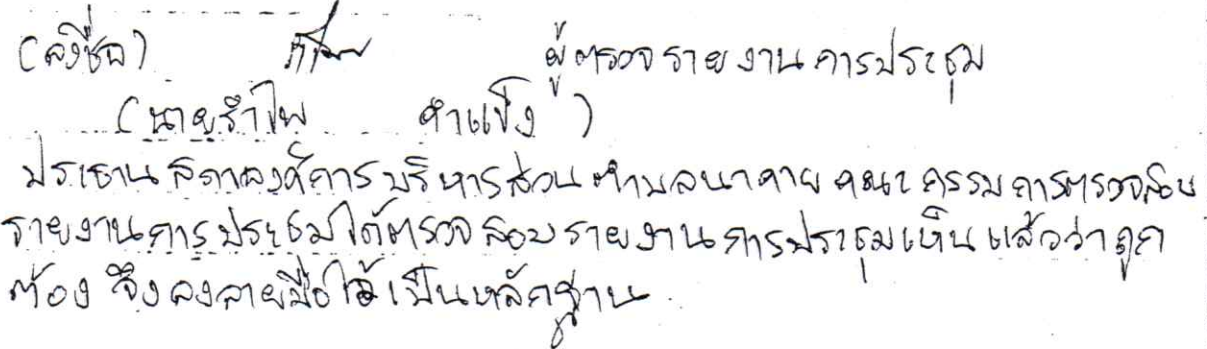 (ลงชื่อ) รำไพ ผู้ตรวจรายงานการประชุม
(นายรำไพ คำแข็ง)
ประธานสภาองค์การบริหารส่วนตำบลนาคาย คณะกรรมการตรวจสอบ
รายงานการประชุมได้ตรวจสอบรายงานการประชุมเห็นแล้วว่าถูก
ต้อง จึงลงลายมือไว้เป็นหลักฐาน